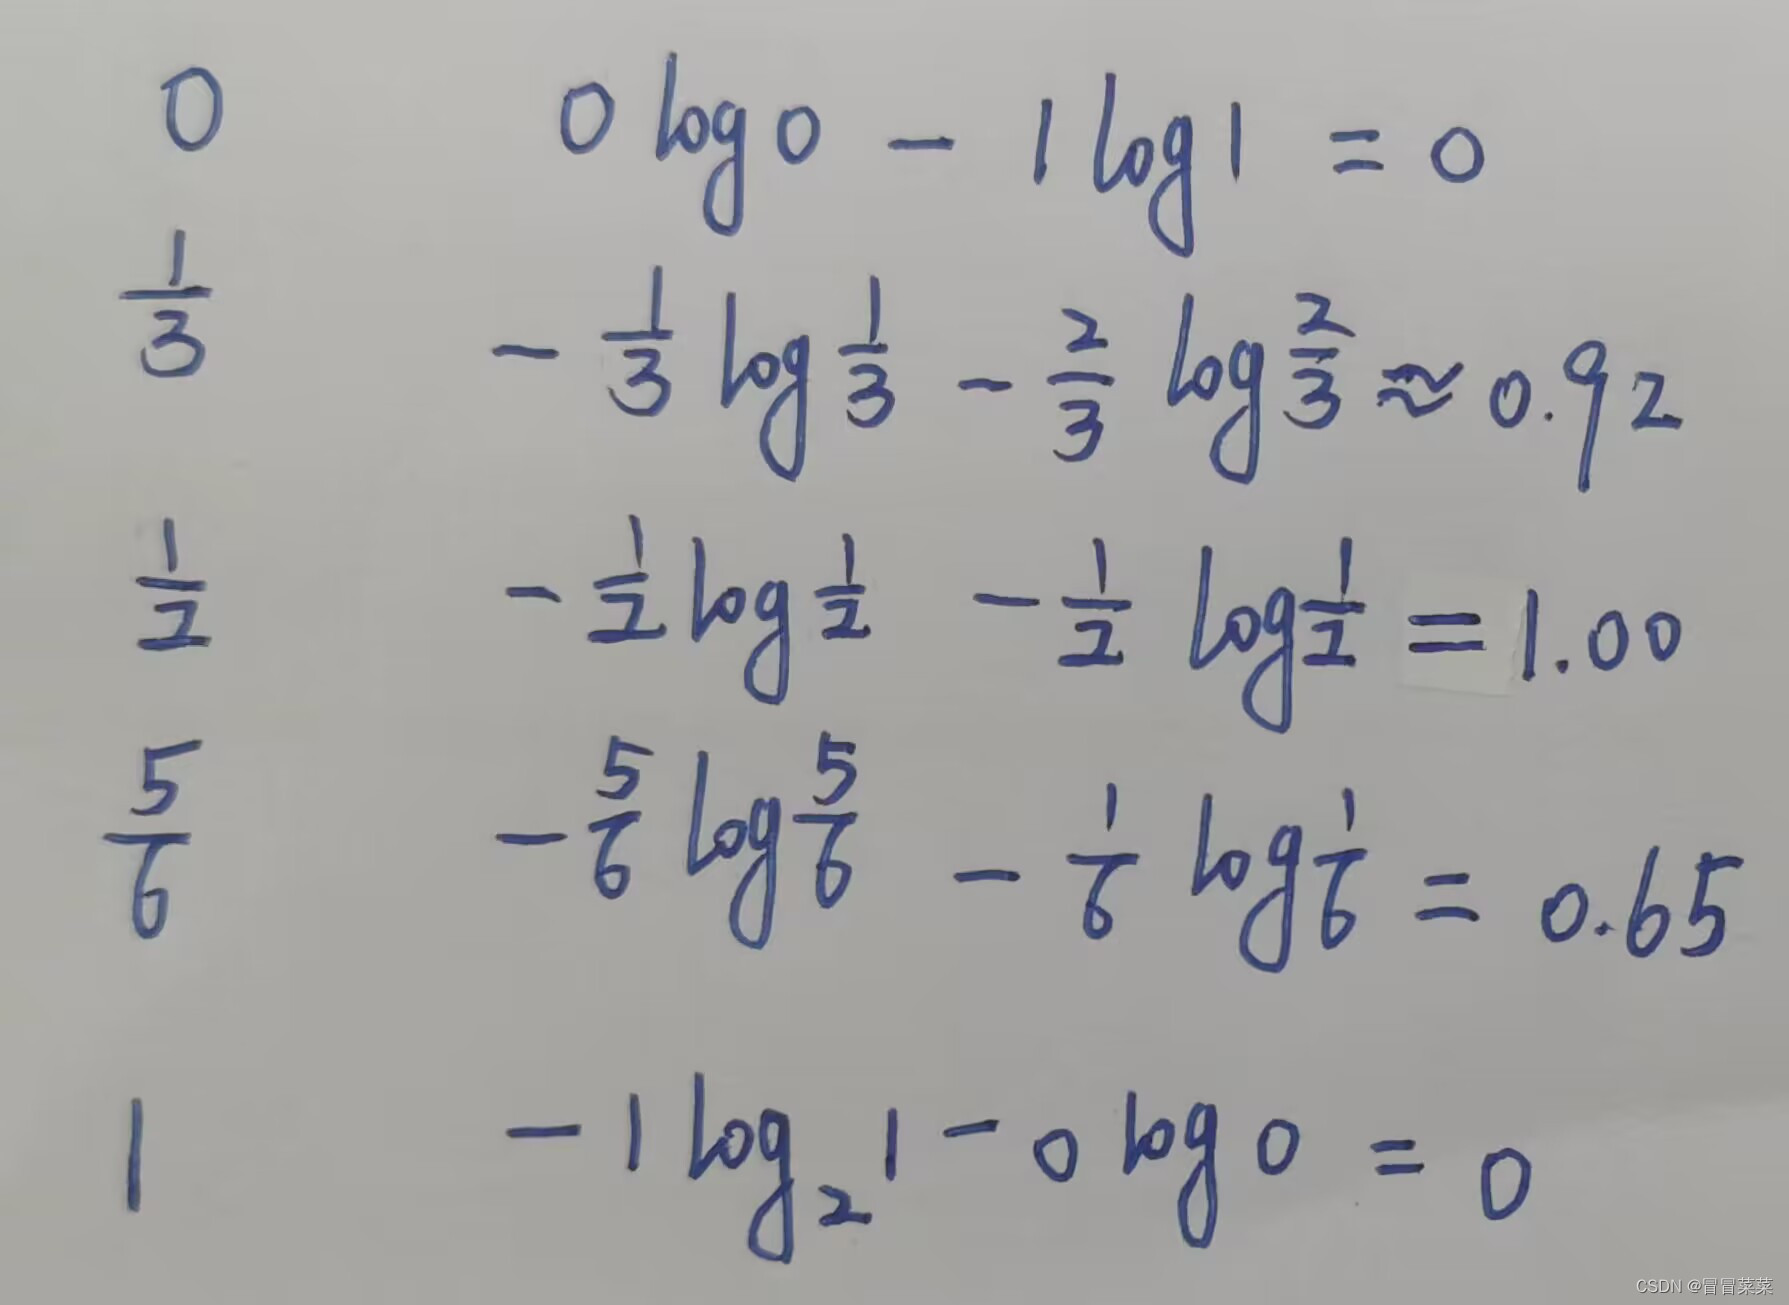 0 0 log 0 - 1 log 1 = 0
1/3 - 1/3 log 1/3 - 2/3 log 2/3 ≈ 0.92
1/2 - 1/2 log 1/2 - 1/2 log 1/2 = 1.00
5/6 - 5/6 log 5/6 - 1/6 log 1/6 = 0.65
1 - 1 log₂ 1 - 0 log 0 = 0
CSDN @冒冒菜菜